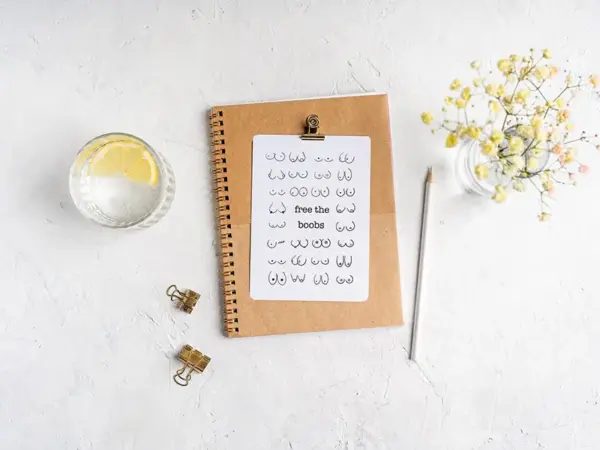 free the
boobs